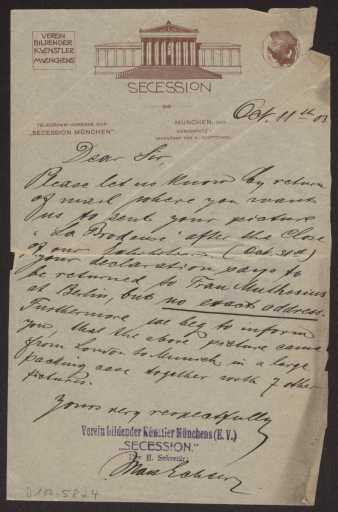 VEREIN
BILDENDER
KVENSTLER
MVENCHENS
SECESSION
TELEGRAMM-ADRESSE NUR
"SECESSION MÜNCHEN"
MÜNCHEN, DEN
KÖNIGSPLATZ 1
Oct. 11th 03
Dear Sir,
Please let us know by return
of mail where you want
us to send your picture
"La Brodeuse" after the close
of our (Oct. 31st)
your declaration says to
be returned to Frau Muthesius
at Berlin, but no exact address.
Furthermore we beg to inform
you that the above picture came
from London to Munich in a large
packing case together with 7 other
pictures.
Yours very respectfully
Verein bildender Künstler Münchens (E. V.)
"SECESSION."
Der II. Sekretär: